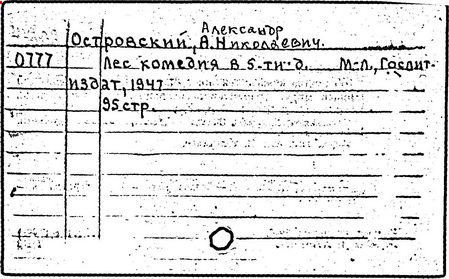 Александр
Островский, А.Николаевич.
0777 Лес комедия в 5-ти д. М-Л., Гослит-
издат, 1947
95 стр.